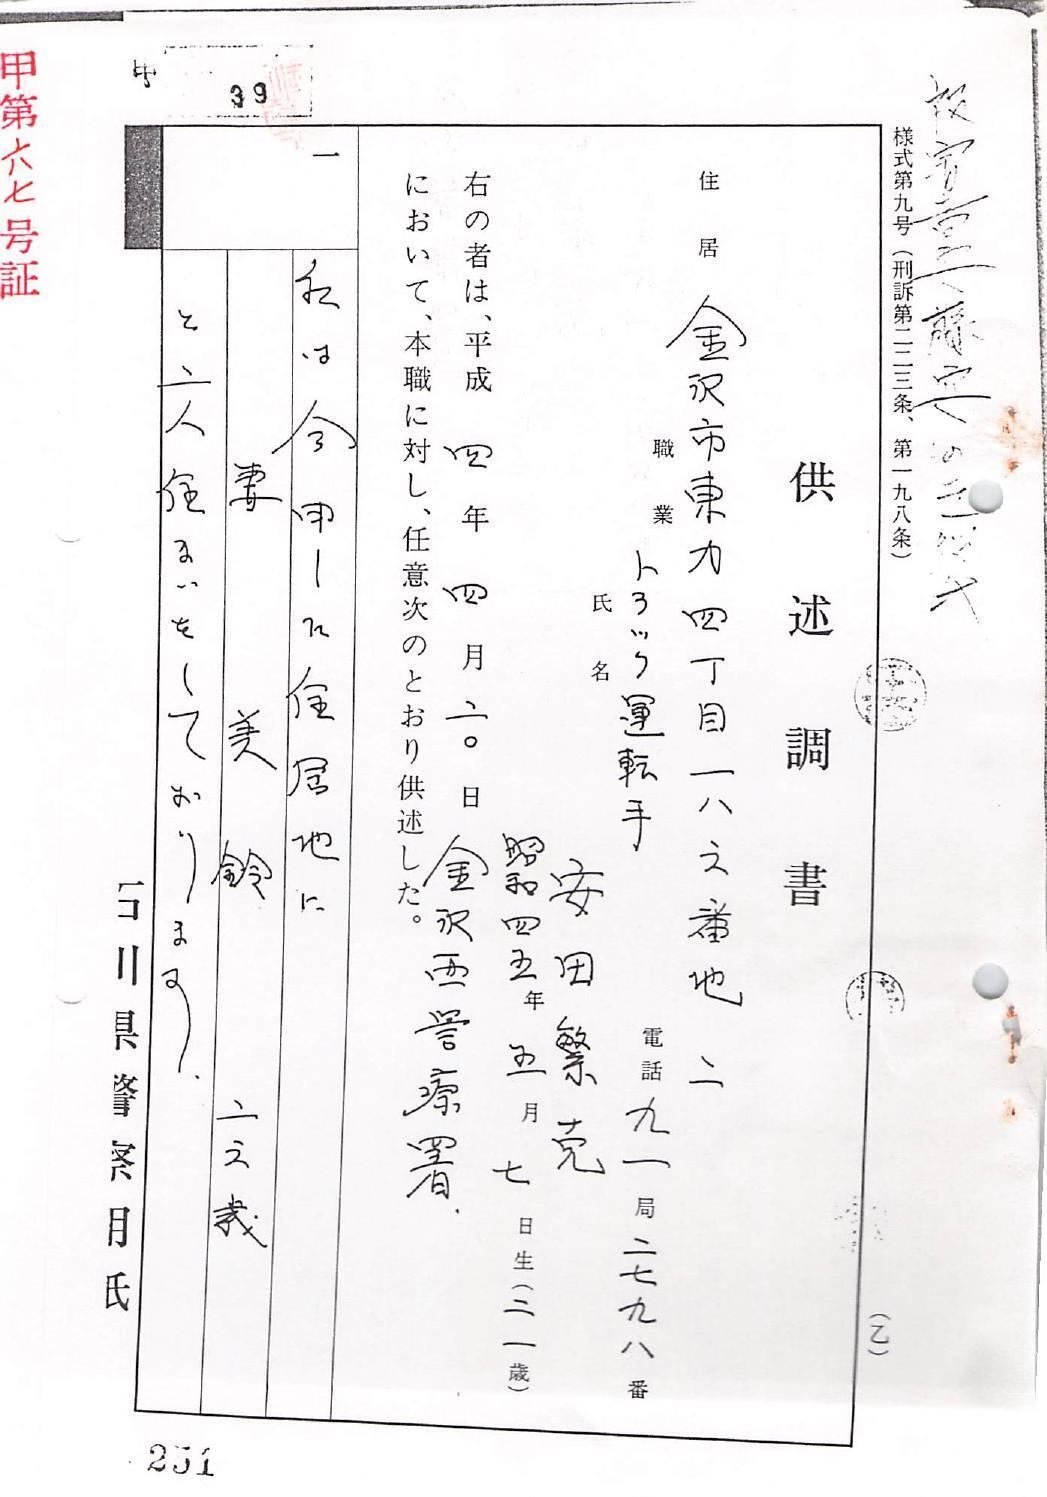 様式第九号(刑訴第二二三条、第一九八条)
(乙)
供述調書
住居 金沢市東力四丁目一八之番地二
職業 トラック運転手 電話九一局二七九八番
氏名 安田繁克
昭和四五年五月七日生(二一歳)
右の者は、平成四年四月二〇日 金沢西警察署
において、本職に対し、任意次のとおり供述した。
一
私は今申した住居地に
妻 美鈴 二之歳
と二人住まいをしております。
石川県警察用
甲第六七号証
39
251